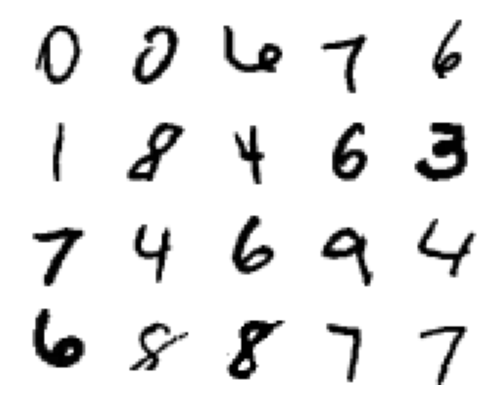 0 0 6 7 6
1 8 4 6 3
7 4 6 9 4
6 8 8 7 7